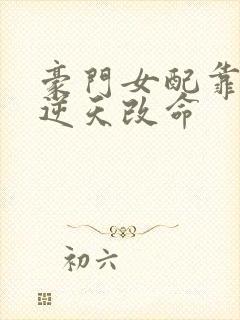 豪門女配靠
逆天改命
初六